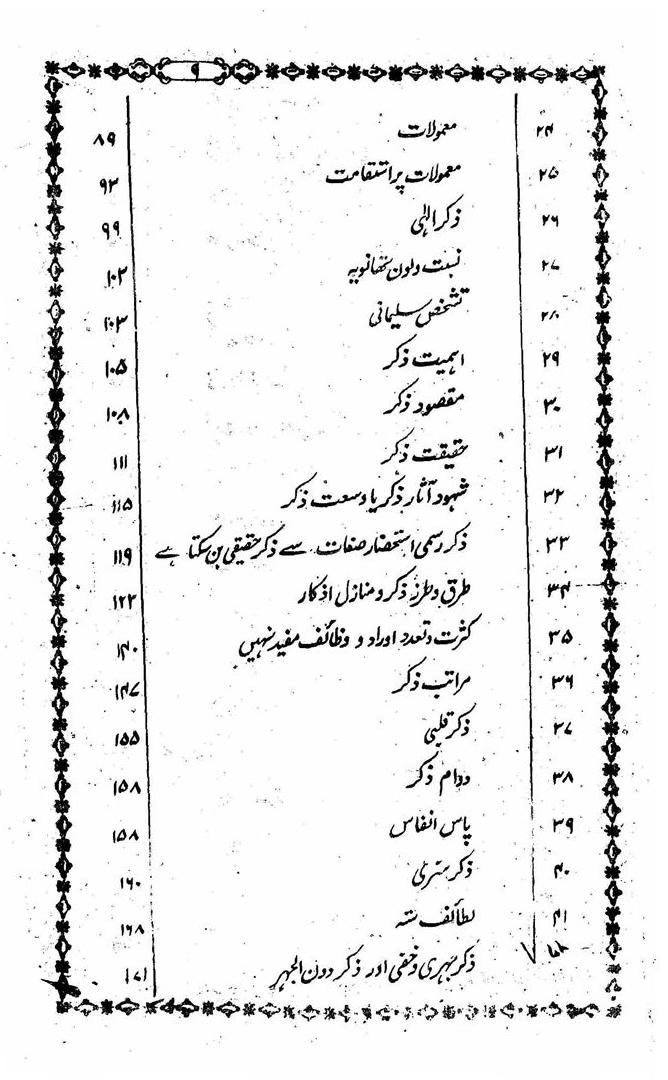 ۹
۲۴ معمولات ۸۹
۲۵ معمولات پر استقامت ۹۳
۲۶ ذکر الٰہی ۹۹
۲۷ نسبت ولون تھانویہ ۱۰۲
۲۸ تشخص سلیمانی ۱۰۳
۲۹ اہمیت ذکر ۱۰۵
۳۰ مقصود ذکر ۱۰۸
۳۱ حقیقت ذکر ۱۱۱
۳۲ شہود آثار ذکر یا وسعت ذکر ۱۱۵
۳۳ ذکر رسمی استحضار صفات سے ذکر حقیقی بن سکتا ہے ۱۱۹
۳۴ طرق و طرز ذکر و منازل اذکار ۱۲۳
۳۵ کثرت و تعدد اوراد و وظائف مفید نہیں ۱۴۰
۳۶ مراتب ذکر ۱۴۷
۳۷ ذکر قلبی ۱۵۵
۳۸ دوام ذکر ۱۵۸
۳۹ پاس انفاس ۱۵۸
۴۰ ذکر سری ۱۶۰
۴۱ لطائف ستہ ۱۶۸
ذکر جہری و خفی اور ذکر دون الجہر ۱۷۱